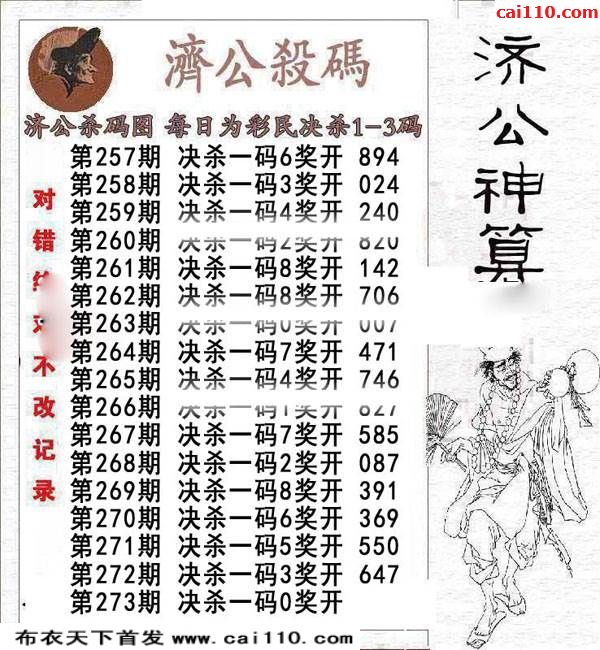 cai110.com
濟公殺碼
济公杀码图 每日为彩民决杀1-3码
第257期 决杀一码6奖开 894
第258期 决杀一码3奖开 024
第259期 决杀一码4奖开 240
第260期 决杀一码2奖开 820
第261期 决杀一码8奖开 142
第262期 决杀一码8奖开 706
第263期 决杀一码0奖开 007
第264期 决杀一码7奖开 471
第265期 决杀一码4奖开 746
第266期 决杀一码1奖开 827
第267期 决杀一码7奖开 585
第268期 决杀一码2奖开 087
第269期 决杀一码8奖开 391
第270期 决杀一码6奖开 369
第271期 决杀一码5奖开 550
第272期 决杀一码3奖开 647
第273期 决杀一码0奖开
对错不改记录
济公神算
布衣天下首发 www.cai110.com